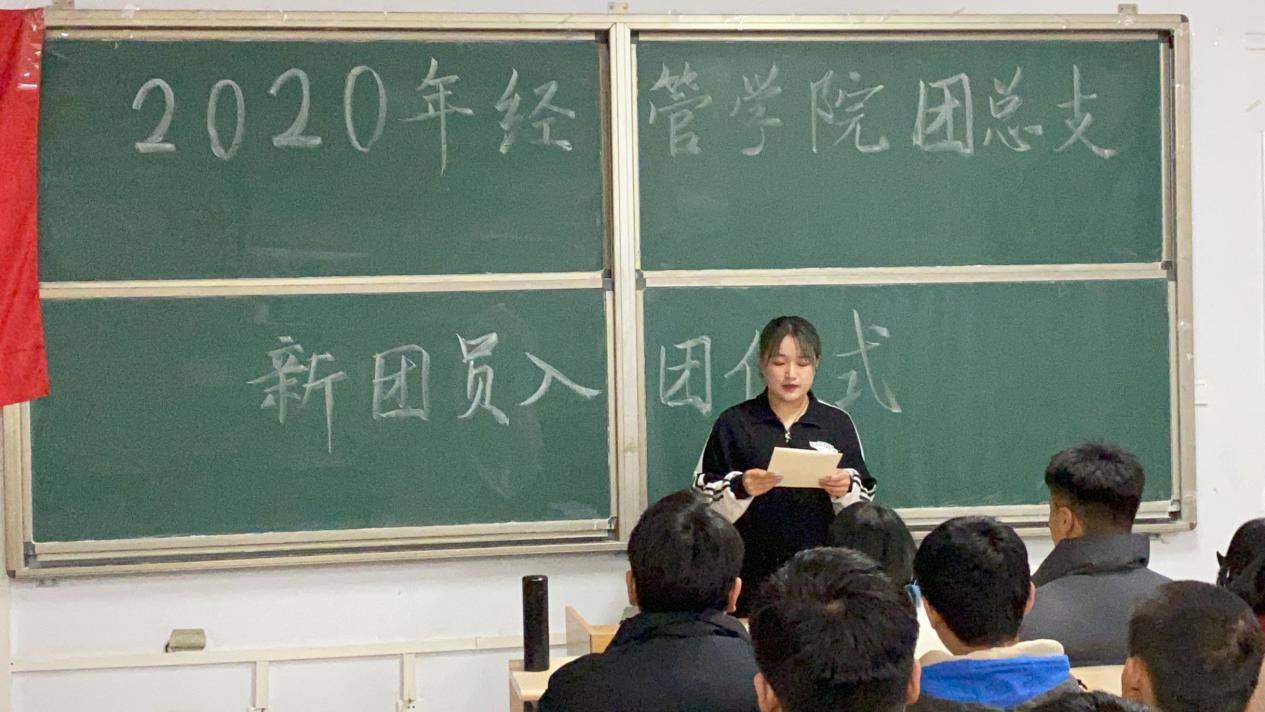 2020年经管学院团总支
新团员入团仪式